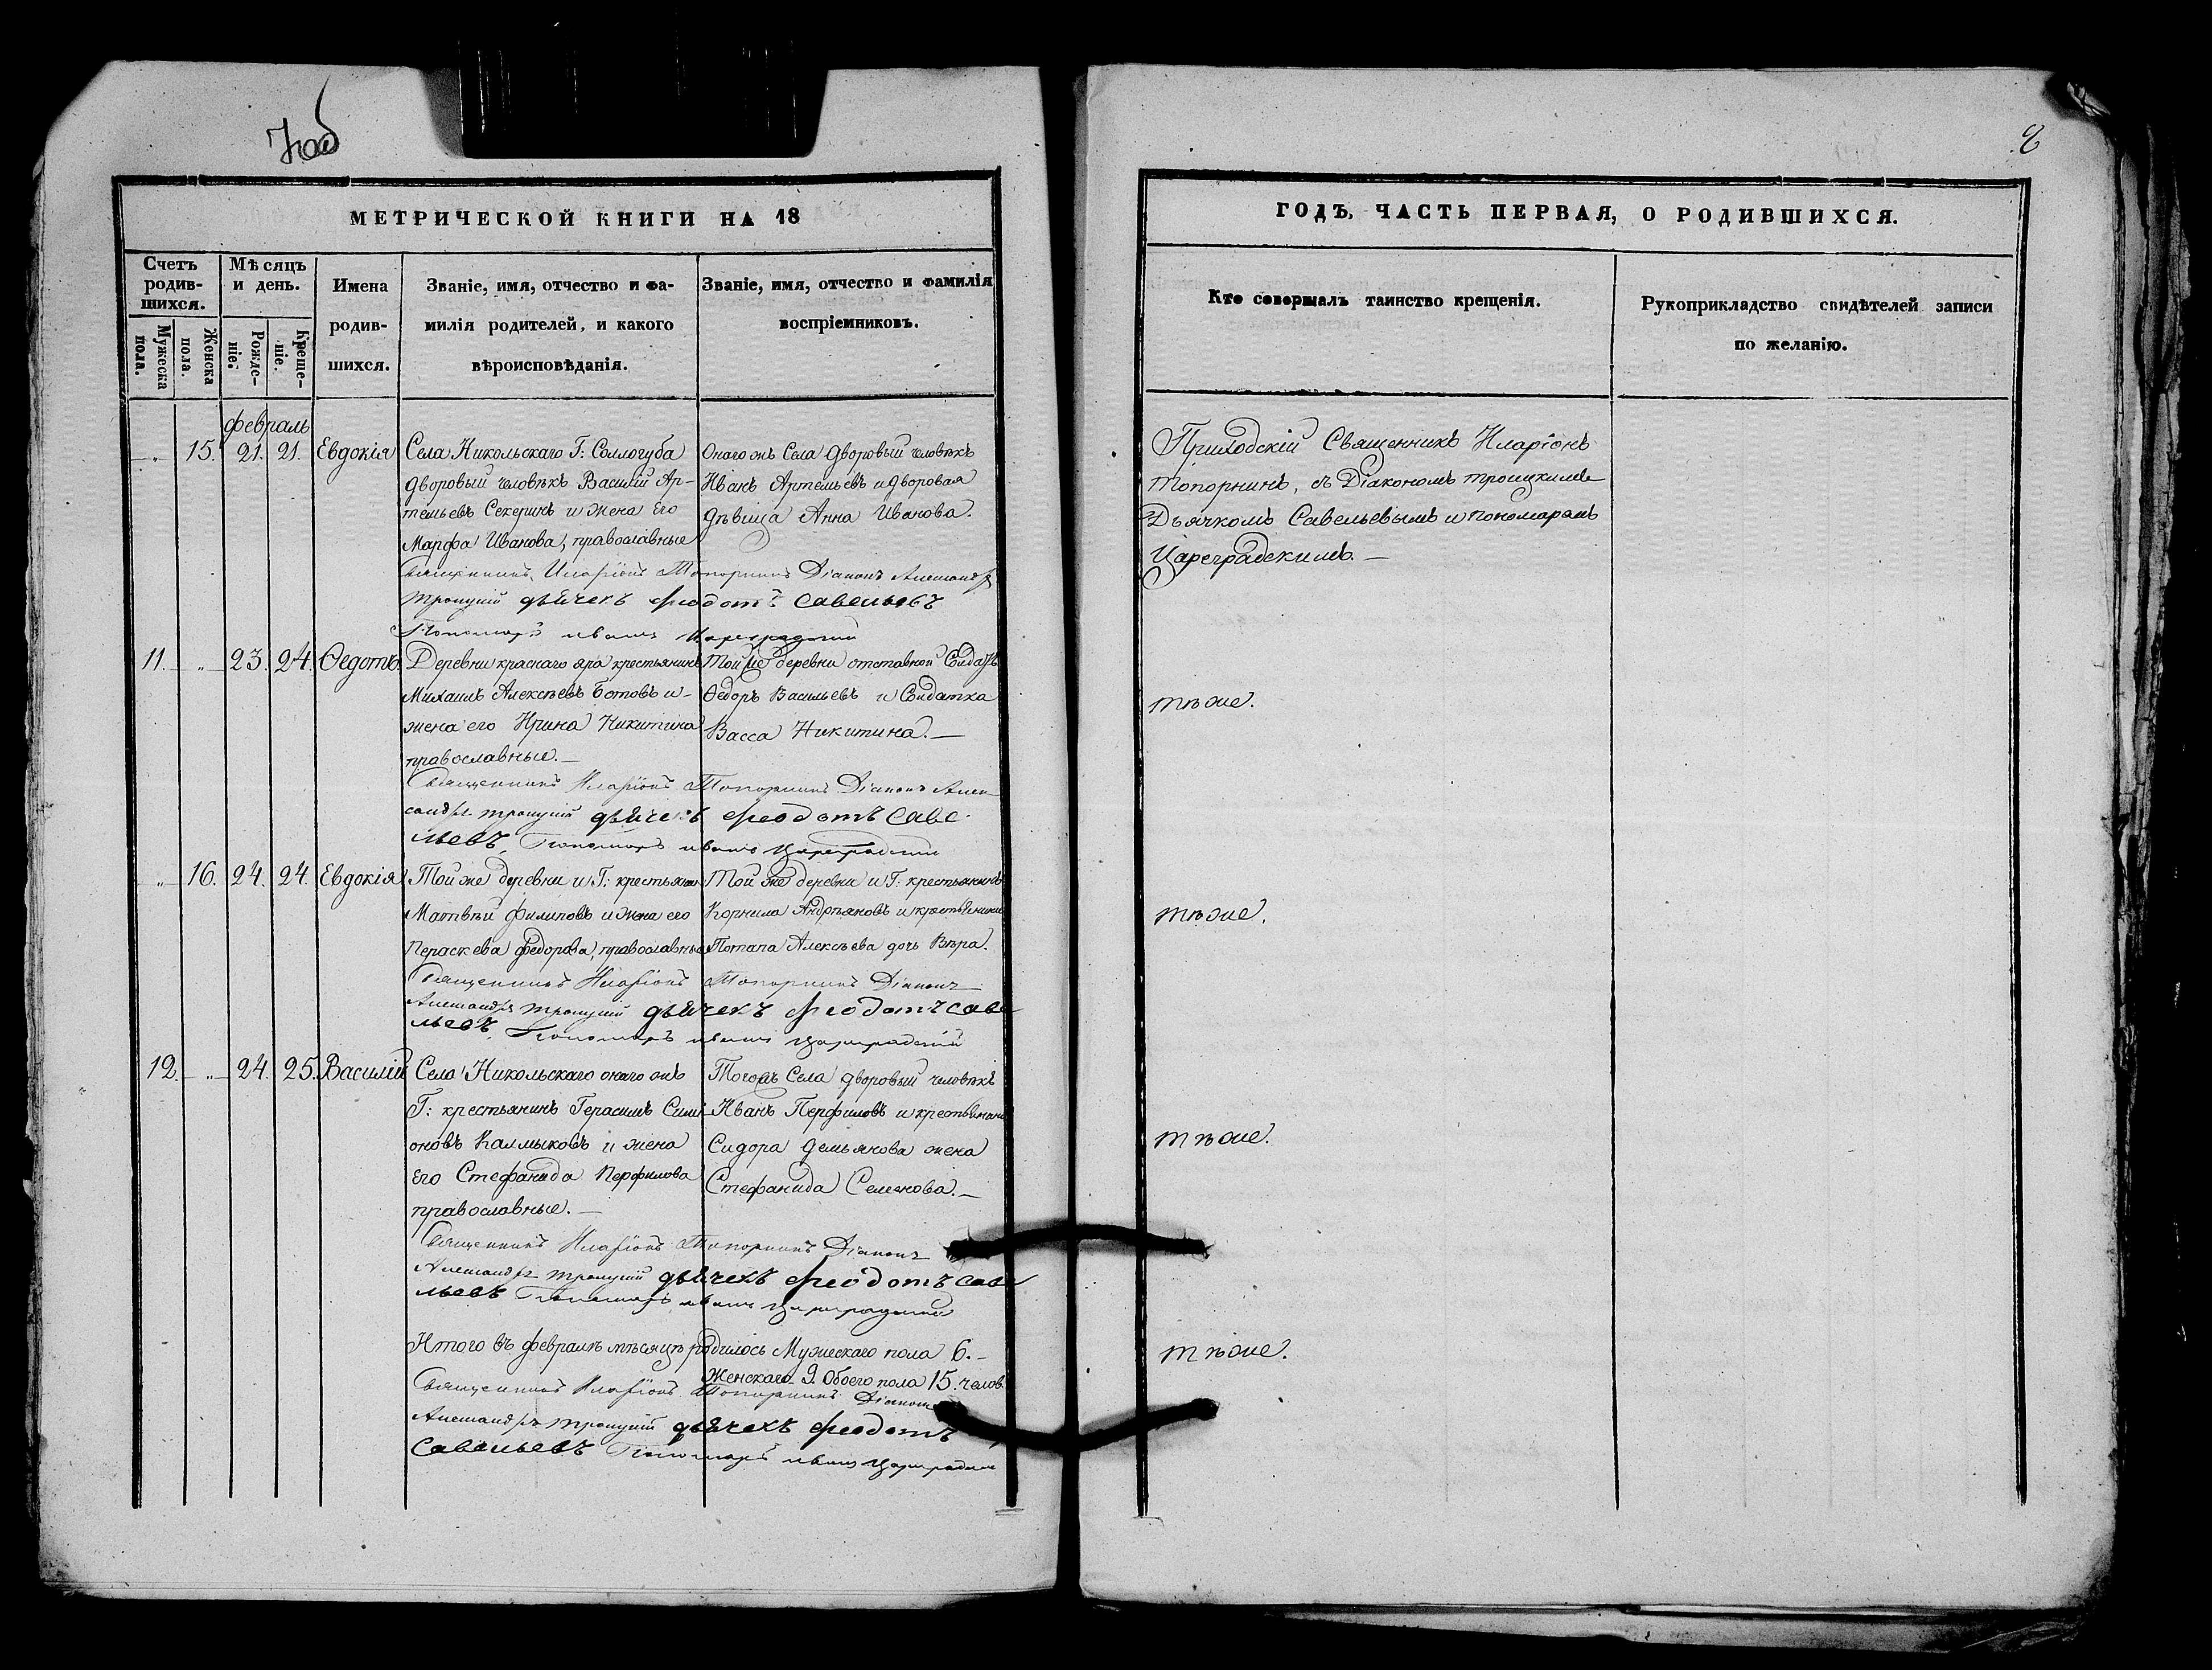 7 об
8
МЕТРИЧЕСКОЙ КНИГИ НА 18
Счетъ родив-
шихся.
Мужеска пола.
Женска пола.
Мѣсяцъ
и день.
Рожде-
ніе.
Креще-
ніе.
Имена
родив-
шихся.
Званіе, имя, отчество и фа-
милія родителей, и какого
вѣроисповѣданія.
Званіе, имя, отчество и фамилія
воспріемниковъ.
февраль
15. 21. 21. Евдокія
Села Никольскаго Г: Соллогуба
дворовый человѣкъ Василій Ар-
темьевъ Секеринъ и жена его
Марфа Иванова, православные
Онаго жъ Села дворовый человѣкъ
Иванъ Артемьевъ и дворовая
дѣвица Анна Иванова.
Священникъ Иларіонъ Топорнинъ Діаконъ Александръ
Троицкій дьячекъ Феодотъ Савельевъ
Пономарь Иванъ Цареградскій
11. „ 23. 24. Ѳедотъ.
Деревни краснаго яра крестьянинъ
Михаилъ Алексѣевъ Ботовъ и
жена его Ирина Никитина
православные.
Той же деревни отставной Солдатъ
Ѳедоръ Васильевъ и Солдатка
Васса Никитина.
Священникъ Иларіонъ Топорнинъ Діаконъ Алек
сандръ Троицкій дьячекъ Феодотъ Саве
льевъ, Пономарь Иванъ Цареградскій
„ 16. 24. 24. Евдокія
Той же деревни и Г: крестьянинъ
Матвѣй Филиповъ и жена его
Пераскева Федорова, православные
Той же деревни и Г: крестьянинъ
Корнила Андреяновъ и крестьянина
Потапа Алексѣева дочь Вѣра.
Священникъ Иларіонъ Топорнинъ Діаконъ
Александръ Троицкій дьячекъ Феодотъ Саве
льевъ, Пономарь Иванъ Цареградскій
12. „ 24. 25. Василій
Села Никольскаго онаго жъ
Г: крестьянинъ Герасимъ Симі
оновъ Калмыковъ и жена
его Стефанида Перфилова
православные.
Тогожъ Села дворовый человѣкъ
Иванъ Перфиловъ и крестьянина
Сидора Демьянова жена
Стефанида Семенова.
Священникъ Иларіонъ Топорнинъ Діаконъ
Александръ Троицкій дьячекъ Феодотъ Саве
льевъ Пономарь Иванъ Цареградскій
Итого въ февралѣ мѣсяцѣ родилось Мужескаго пола 6.
Женскаго 9. Обоего пола 15. челов.
Священникъ Иларіонъ Топорнинъ Діаконъ
Александръ Троицкій дьячекъ Феодотъ
Савельевъ Пономарь Иванъ Цареградскій
ГОДЪ, ЧАСТЬ ПЕРВАЯ, О РОДИВШИХСЯ.
Кто совершалъ таинство крещенія.
Рукоприкладство свидѣтелей записи
по желанію.
Приходскій Священникъ Иларіонъ
Топорнинъ, съ Діакономъ Троицкимъ
Дьячкомъ Савельевымъ и пономаремъ
Цареградскимъ.
тѣже.
тѣже.
тѣже.
тѣже.